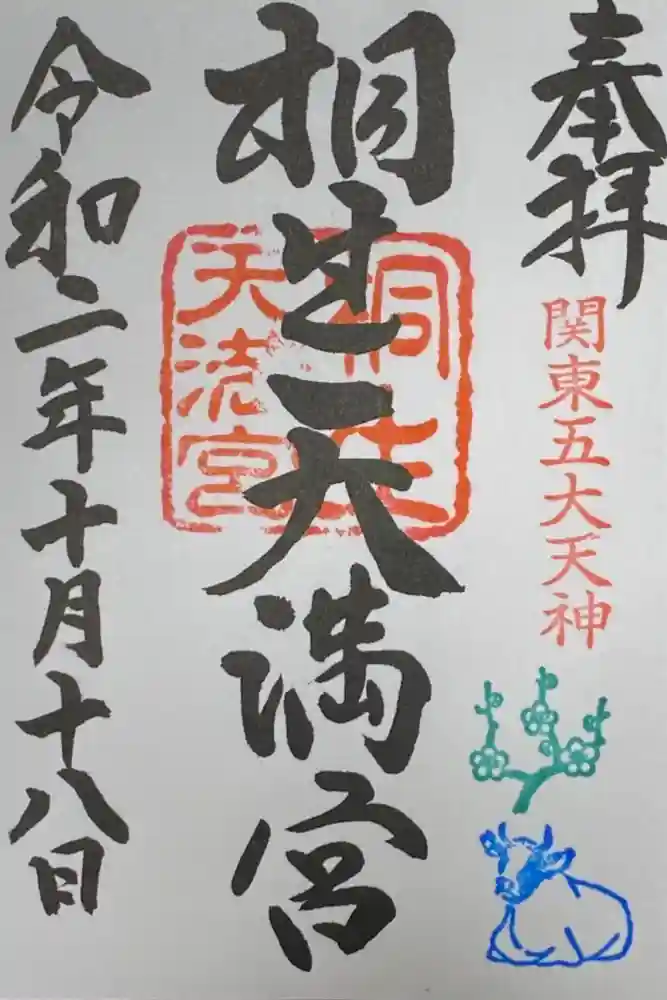 奉拝
関東五大天神
桐生天満宮
桐生
天満宮
令和二年十月十八日